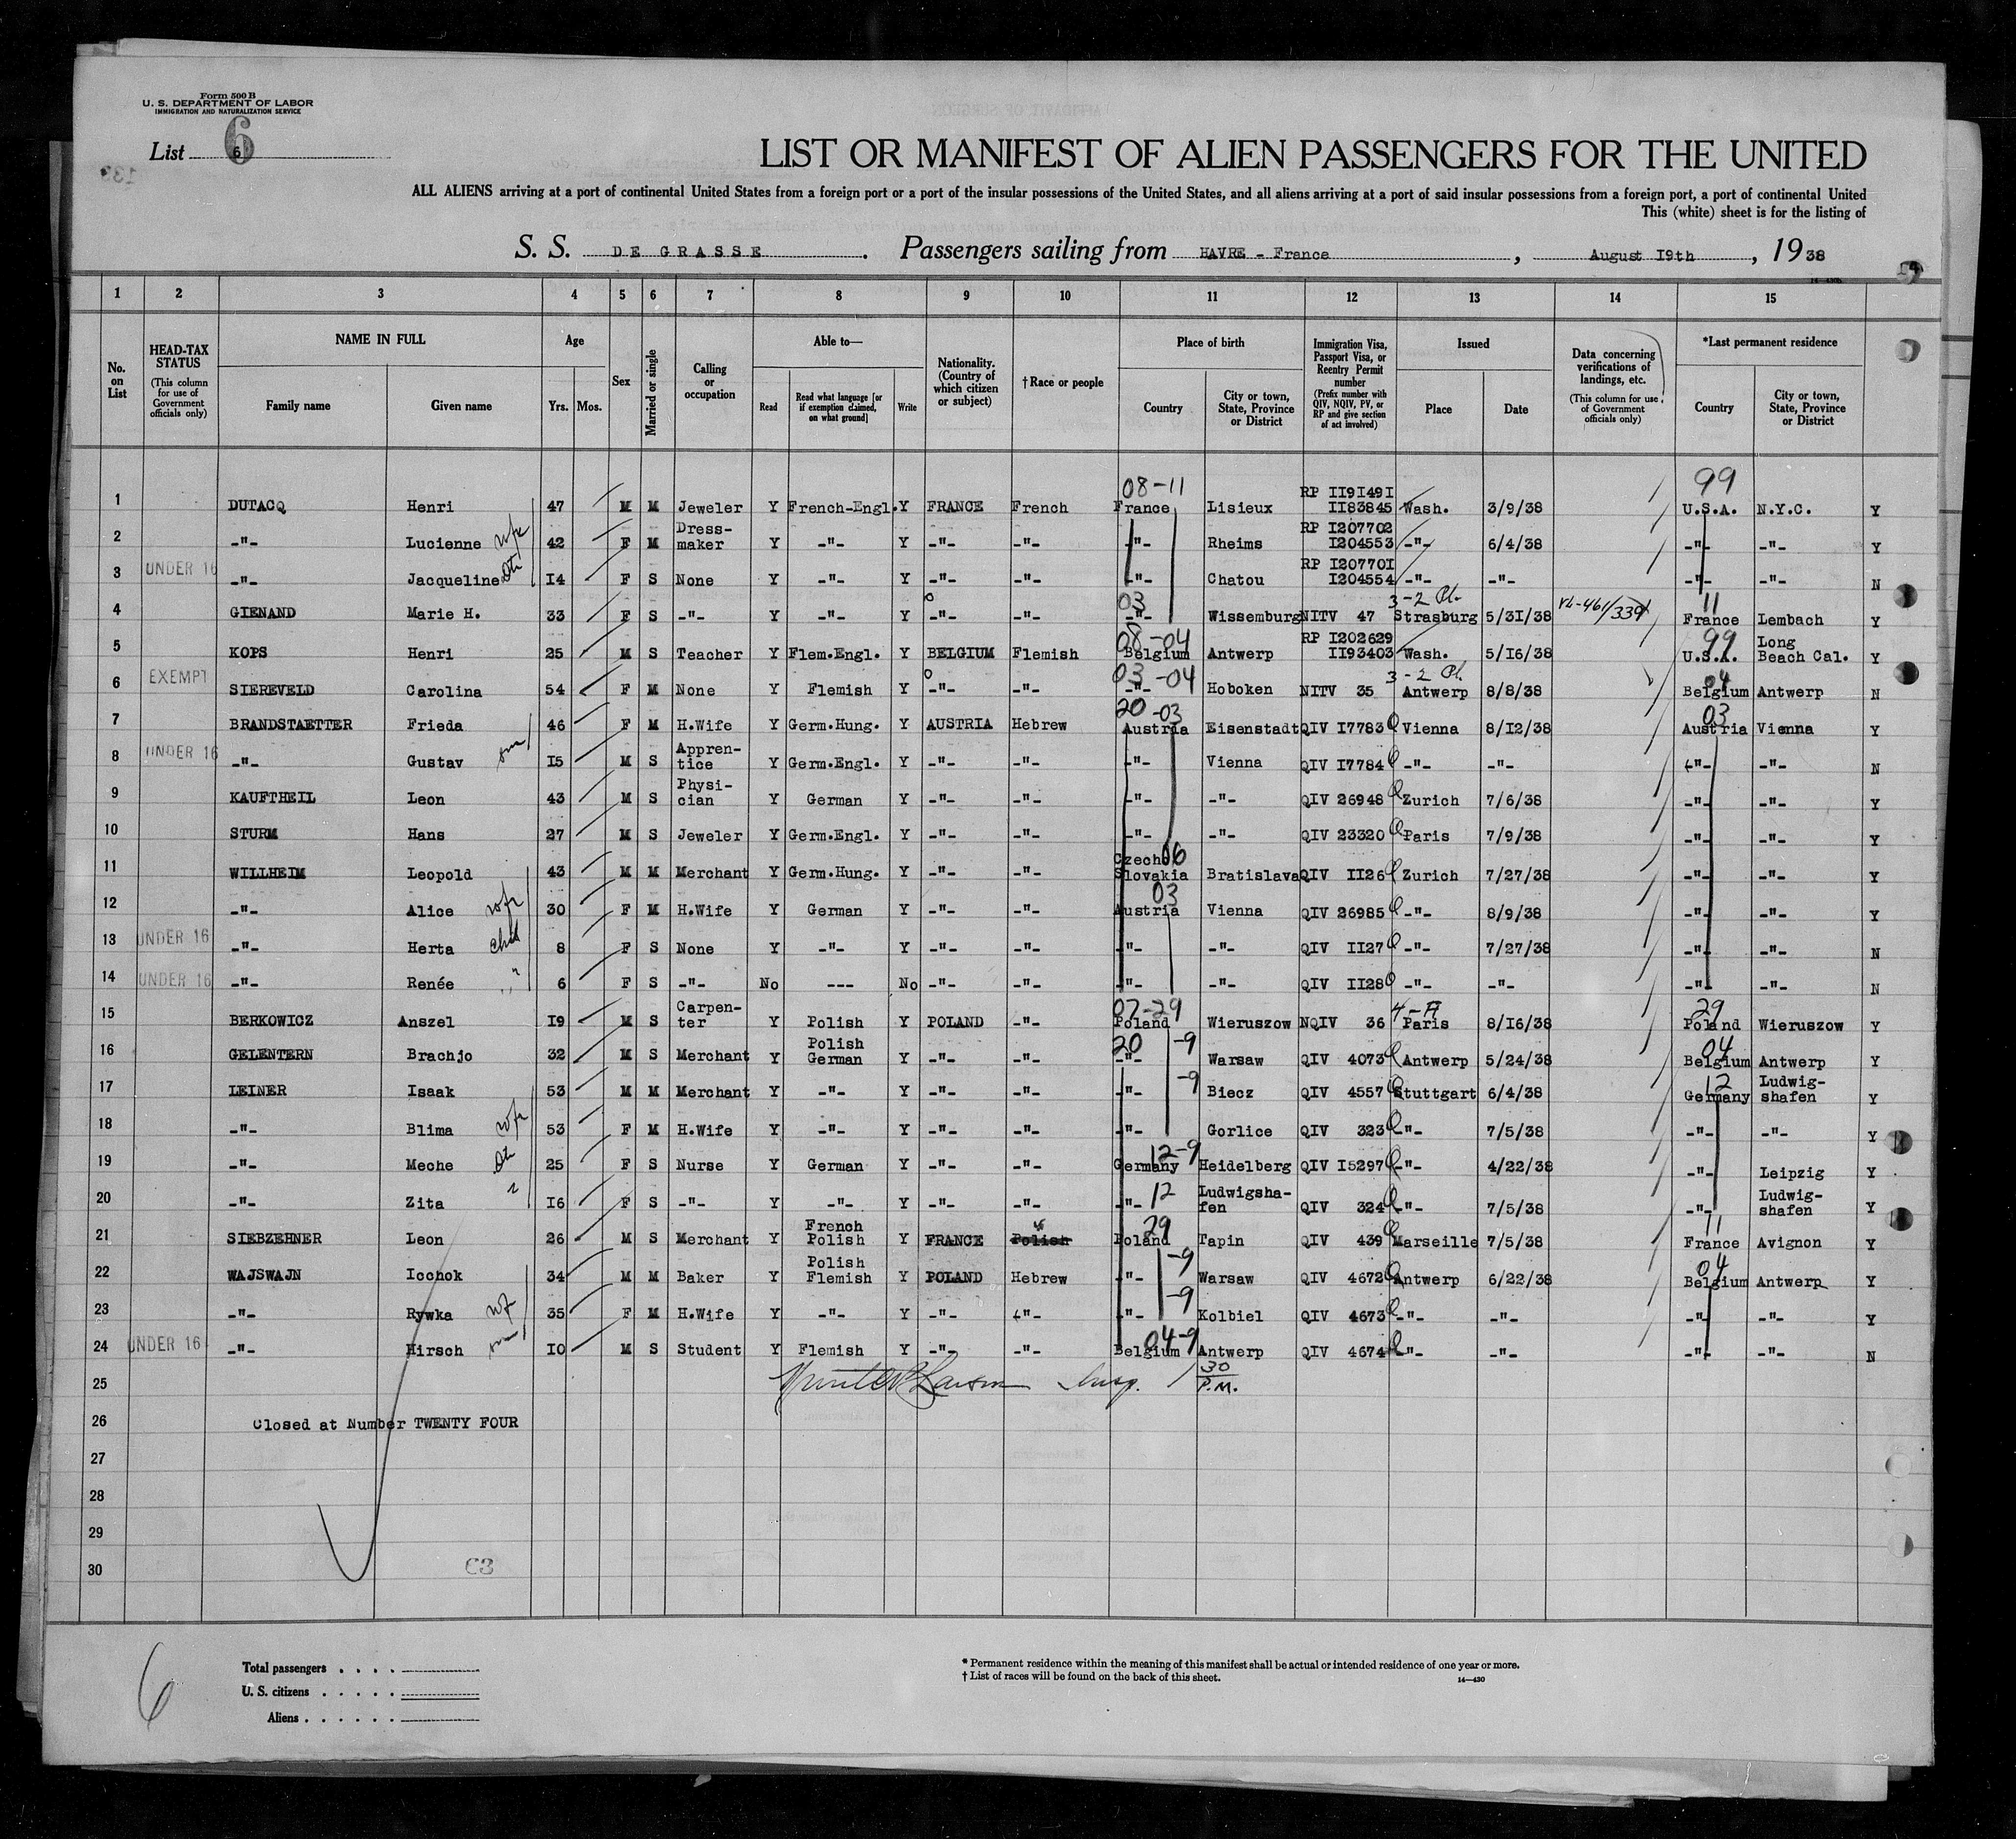 Form 500 B
U. S. DEPARTMENT OF LABOR
IMMIGRATION AND NATURALIZATION SERVICE
List 6 6
LIST OR MANIFEST OF ALIEN PASSENGERS FOR THE UNITED
ALL ALIENS arriving at a port of continental United States from a foreign port or a port of the insular possessions of the United States, and all aliens arriving at a port of said insular possessions from a foreign port, a port of continental United
This (white) sheet is for the listing of
S. S. DE GRASSE. Passengers sailing from HAVRE - France, August I9th, 1938
1 2 3 4 5 6 7 8 9 10 11 12 13 14 15
No. on List
HEAD-TAX STATUS (This column for use of Government officials only)
NAME IN FULL
Family name Given name
Age
Yrs. Mos.
Sex
Married or single
Calling or occupation
Able to—
Read
Read what language [or if exemption claimed, on what ground]
Write
Nationality. (Country of which citizen or subject)
†Race or people
Place of birth
Country
City or town, State, Province or District
Immigration Visa, Passport Visa, or Reentry Permit number (Prefix number with QIV, NQIV, PV, or RP and give section of act involved)
Issued
Place Date
Data concerning verifications of landings, etc. (This column for use of Government officials only)
*Last permanent residence
Country
City or town, State, Province or District
08-11 99
1 DUTACQ Henri 47 M M Jeweler Y French-Engl. Y FRANCE French France Lisieux RP II9I49I II83845 Wash. 3/9/38 U.S.A. N.Y.C. Y
2 -"- Lucienne wfe 42 F M Dress-maker Y -"- Y -"- -"- -"- Rheims RP I207702 I204553 -"- 6/4/38 -"- -"- Y
3 UNDER 16 -"- Jacqueline I4 F S None Y -"- Y -"- -"- -"- Chatou RP I20770I I204554 -"- -"- -"- -"- N
03 3-2 Pl. 11
4 GIENAND Marie H. 33 F S -"- Y -"- Y -"- -"- -"- Wissemburg NITV 47 Strasburg 5/31/38 France Lembach Y
08-04 99
5 KOPS Henri 25 M S Teacher Y Flem.Engl. Y BELGIUM Flemish Belgium Antwerp RP I202629 II93403 Wash. 5/I6/38 U.S.A. Long Beach Cal. Y
03-04 3-2 Pl. 04
6 EXEMPT SIEREVELD Carolina 54 F M None Y Flemish Y -"- -"- -"- Hoboken NITV 35 Antwerp 8/8/38 Belgium Antwerp N
20-03 03
7 BRANDSTAETTER Frieda 46 F M H.Wife Y Germ.Hung. Y AUSTRIA Hebrew Austria Eisenstadt QIV I7783 Vienna 8/I2/38 Austria Vienna Y
8 UNDER 16 -"- Gustav son I5 M S Appren-tice Y Germ.Engl. Y -"- -"- -"- Vienna QIV I7784 -"- -"- -"- -"- N
9 KAUFTHEIL Leon 43 M S Physi-cian Y German Y -"- -"- -"- -"- QIV 26948 Zurich 7/6/38 -"- -"- Y
10 STURM Hans 27 M S Jeweler Y Germ.Engl. Y -"- -"- -"- -"- QIV 23320 Paris 7/9/38 -"- -"- Y
06
11 WILLHEIM Leopold 43 M M Merchant Y Germ.Hung. Y -"- -"- Czecho Slovakia Bratislava QIV II26 Zurich 7/27/38 -"- -"- Y
03
12 -"- Alice wfe 30 F M H.Wife Y German Y -"- -"- Austria Vienna QIV 26985 -"- 8/9/38 -"- -"- Y
13 UNDER 16 -"- Herta chd 8 F S None Y -"- Y -"- -"- -"- -"- QIV II27 -"- 7/27/38 -"- -"- N
14 UNDER 16 -"- Renée " 6 F S -"- No --- No -"- -"- -"- -"- QIV II28 -"- -"- -"- -"- N
07-29 29
15 BERKOWICZ Anszel I9 M S Carpen-ter Y Polish Y POLAND -"- Poland Wieruszow NQIV 36 Paris 8/I6/38 Poland Wieruszow Y
20 -9 04
16 GELENTERN Brachjo 32 M S Merchant Y Polish German Y -"- -"- -"- Warsaw QIV 4073 Antwerp 5/24/38 Belgium Antwerp Y
-9 12
17 LEINER Isaak 53 M M Merchant Y -"- Y -"- -"- -"- Biecz QIV 4557 Stuttgart 6/4/38 Germany Ludwig-shafen Y
18 -"- Blima wfe 53 F M H.Wife Y -"- Y -"- -"- -"- Gorlice QIV 323 -"- 7/5/38 -"- -"- Y
12-9
19 -"- Meche 25 F S Nurse Y German Y -"- -"- Germany Heidelberg QIV I5297 -"- 4/22/38 -"- Leipzig Y
12
20 -"- Zita I6 F S -"- Y -"- Y -"- -"- -"- Ludwigsha-fen QIV 324 -"- 7/5/38 -"- Ludwig-shafen Y
29 11
21 SIEBZEHNER Leon 26 M S Merchant Y French Polish Y FRANCE Polish Poland Tapin QIV 439 Marseille 7/5/38 France Avignon Y
-9 04
22 WAJSWAJN Icchok 34 M M Baker Y Polish Flemish Y POLAND Hebrew -"- Warsaw QIV 4672 Antwerp 6/22/38 Belgium Antwerp Y
-9
23 -"- Rywka wf 35 F M H.Wife Y -"- Y -"- -"- -"- Kolbiel QIV 4673 -"- -"- -"- -"- Y
04-9
24 UNDER 16 -"- Hirsch son IO M S Student Y Flemish Y -"- -"- Belgium Antwerp QIV 4674 -"- -"- -"- -"- N
25 Insp. 1 30 P.M.
26 Closed at Number TWENTY FOUR
27
28
29
30 C3
6
Total passengers
U. S. citizens
Aliens
* Permanent residence within the meaning of this manifest shall be actual or intended residence of one year or more.
† List of races will be found on the back of this sheet.
14—430